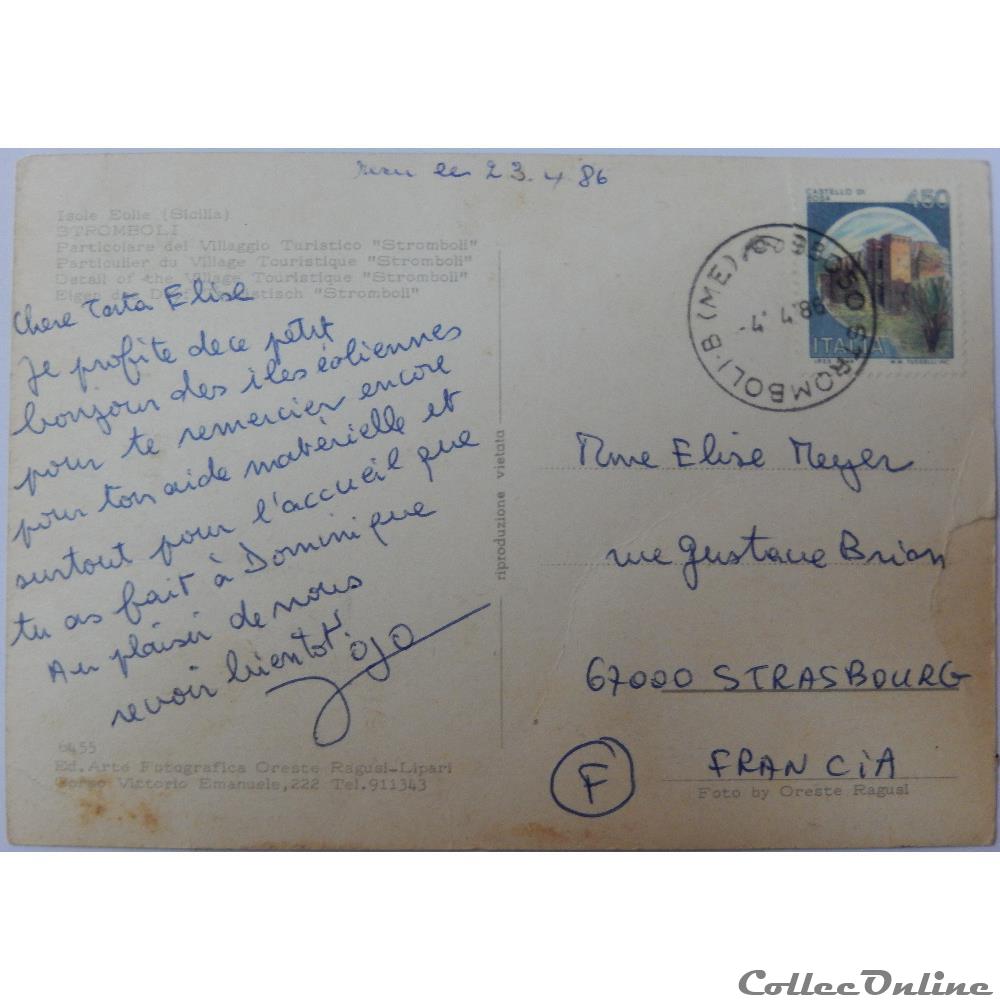 reçu le 23.4.86
Isole Eolie (Sicilia)
STROMBOLI
Particolare del Villaggio Turistico "Stromboli"
Particulier du Village Touristique "Stromboli"
Detail of the Village Touristique "Stromboli"
Eigen des Dorf Touristisch "Stromboli"
Chere Tata Elise
Je profite de ce petit
bonjour des iles éoliennes
pour te remercier encore
pour ton aide matérielle et
surtout pour l'accueil que
tu as fait à Dominique
Au plaisir de nous
revoir bientot
Jojo
6455
Ed. Arte Fotografica Oreste Ragusi-Lipari
Corso Vittorio Emanuele, 222 Tel. 911343
riproduzione vietata
CASTELLO DI
ROSA
450
ITALIA
98050 STROMBOLI·B (ME)
-4.4.86
Mme Elise Meyer
rue Gustave Brion
67000 STRASBOURG
F
FRANCIA
Foto by Oreste Ragusi
CollecOnline